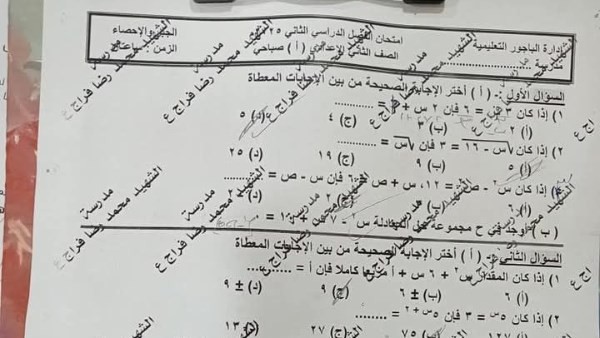 إدارة الباجور التعليمية
امتحان الفصل الدراسي الثاني
الجبر والإحصاء
مدرسة
الصف الثاني الإعدادي (أ) صباحي
الزمن
السؤال الأول :- (أ) أختر الإجابة الصحيحة من بين الإجابات المعطاة
١) إذا كان ٣ س = ٦ فإن ٢ س + = ..........
(أ) ٢ (ب) ٣ (ج) ٤ (د) ٥
٢) إذا كان √س - √١٦ = ٣ فإن √س = ..........
(أ) ٥ (ب) ٩ (ج) ١٩ (د) ٢٥
إذا كان س٢ - ص٢ = ١٢، س + ص = ٦ فإن س - ص = ..........
(أ) ٦ (د) ٢
(ب) أوجد في ح مجموعة حل المعادلة س٢ - ٧ = ٠
السؤال الثاني :- (أ) أختر الإجابة الصحيحة من بين الإجابات المعطاة
١) إذا كان المقدار س٢ + ٦ س + أ مربعا كاملا فإن أ = ..........
(أ) ٦ (ب) ± ٦ (ج) ٩ (د) ± ٩
٢) إذا كان ٥س = ٣ فإن ٥س+٢ = ..........
(أ) ١٢٧ (ب) ٧٥ (ج) ٢٧ (د) ١٣
مدرسة
الشهيد محمد رضا فراج ع